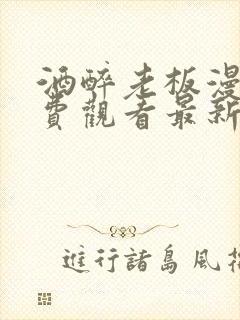 酒醉老板漫
費觀看最新
進行諸島風花